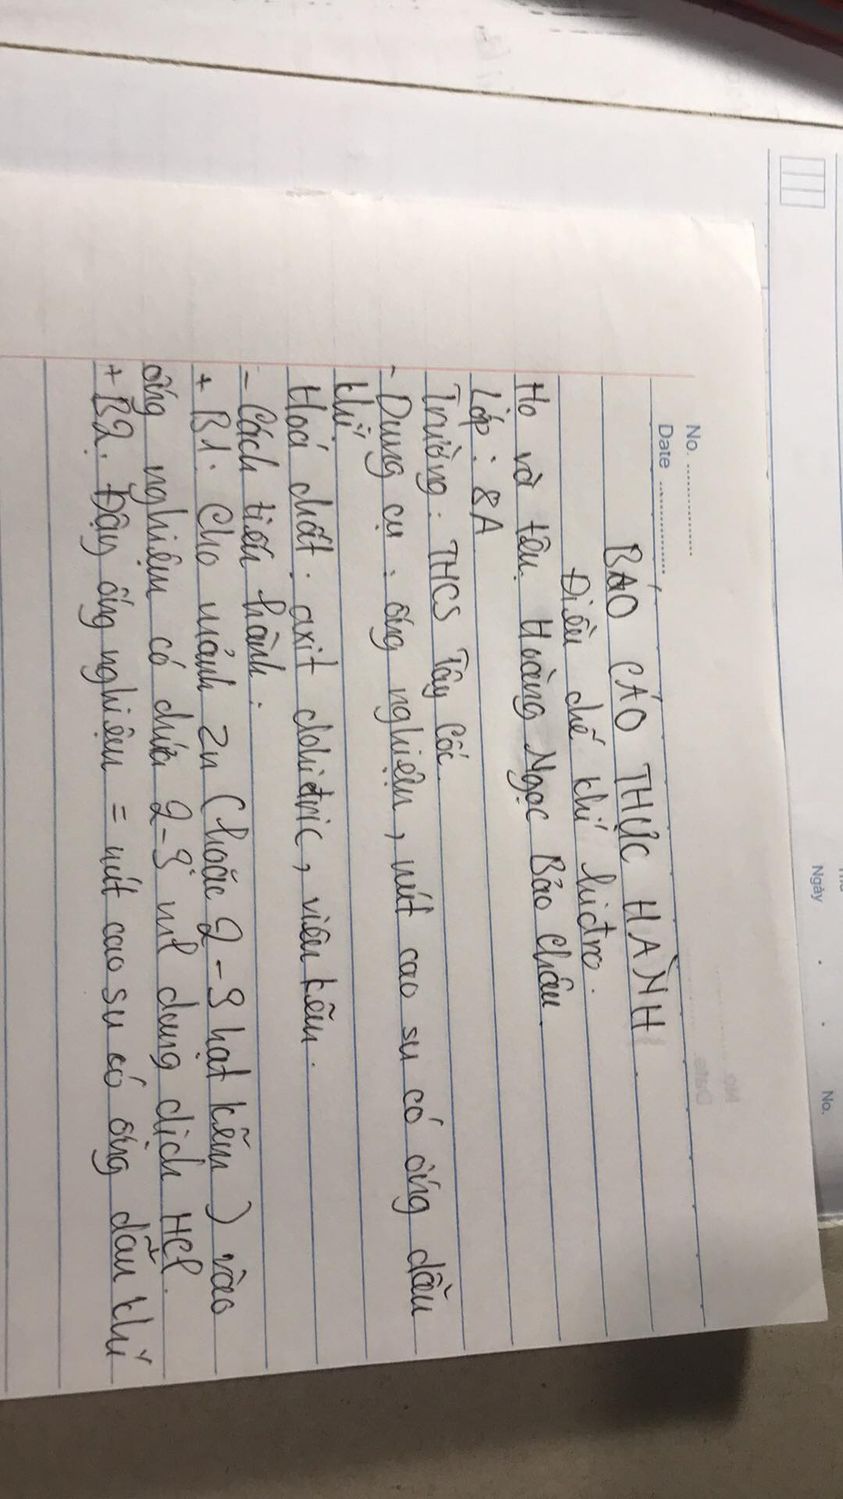 No. ..................
Date ..................
BÁO CÁO THỰC HÀNH
Điều chế khí hiđro.
Họ và tên. Hoàng Ngọc Bảo Châu
Lớp : 8A
Trường : THCS Tây Cốc
- Dụng cụ : ống nghiệm, nút cao su có ống dẫn
khí.
Hoá chất : axit clohiđric, viên kẽm.
- Cách tiến hành.
+ B1. Cho mảnh Zn (hoặc 2-3 hạt kẽm) vào
ống nghiệm có chứa 2-3 ml dung dịch HCl.
+ B2. Đậy ống nghiệm = nút cao su có ống dẫn khí
Ngày
No.